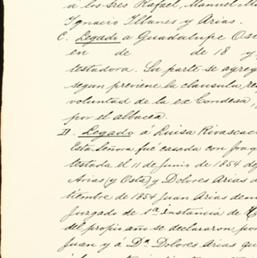 a los tres Rafael, Manuel
Ignacio Illanes y Arias.
C. Legado a Guadalupe
en de de 18 y
testadora. Su parte se agreg
segun previene la clausula
voluntad de la ex Condesa,
por el albacea.
D. Legado á Luisa Rivascac
Esta Señora fué casada con
testada el 11 de Junio de 1854
Arias (y Osta) y Dolores Arias
tiembre de 1854 Juan Arias
Juzgado de 1ª Instancia de
del propio año se declararon
Juan y á Dª Dolores Arias